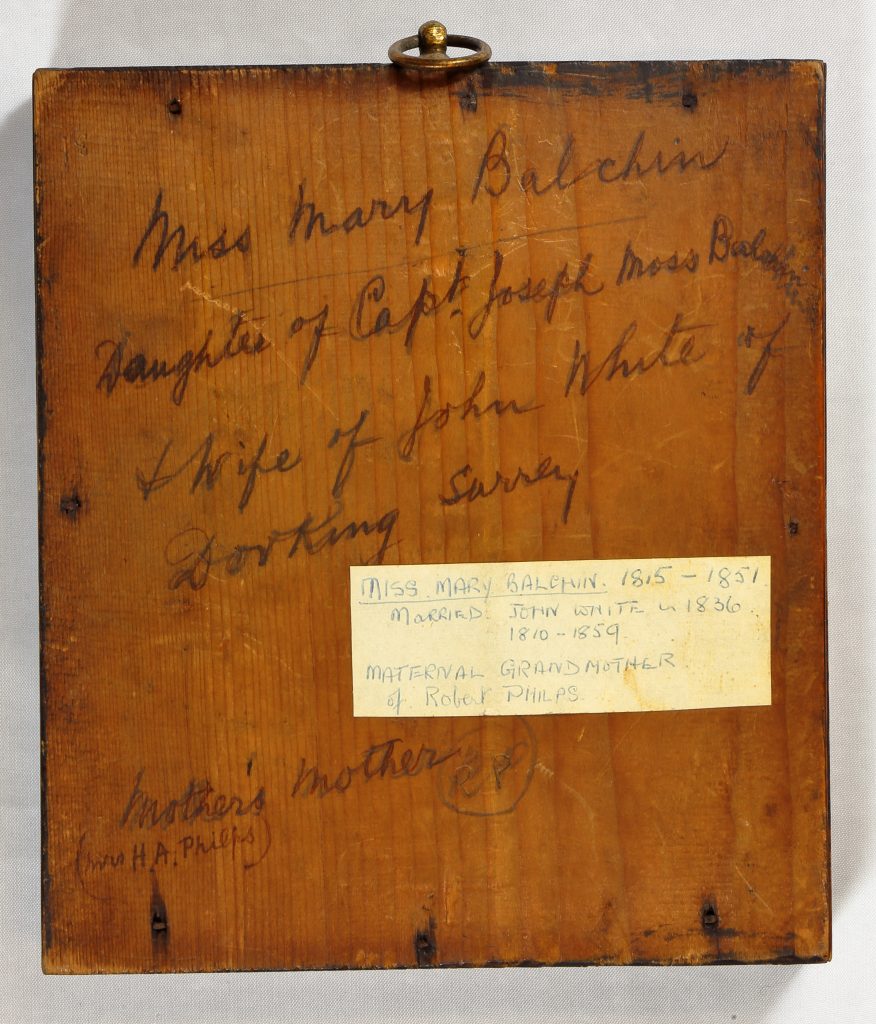 Miss Mary Balchin
Daughter of Capt. Joseph Moss Balchin
& Wife of John White of
Dorking Surrey
MISS. MARY BALCHIN. 1815 - 1851.
MARRIED. JOHN WHITE in 1836.
1810 - 1859.
MATERNAL GRANDMOTHER
of Robert PHILPS.
Mother's Mother
RP
(Mrs H.A. Philps)